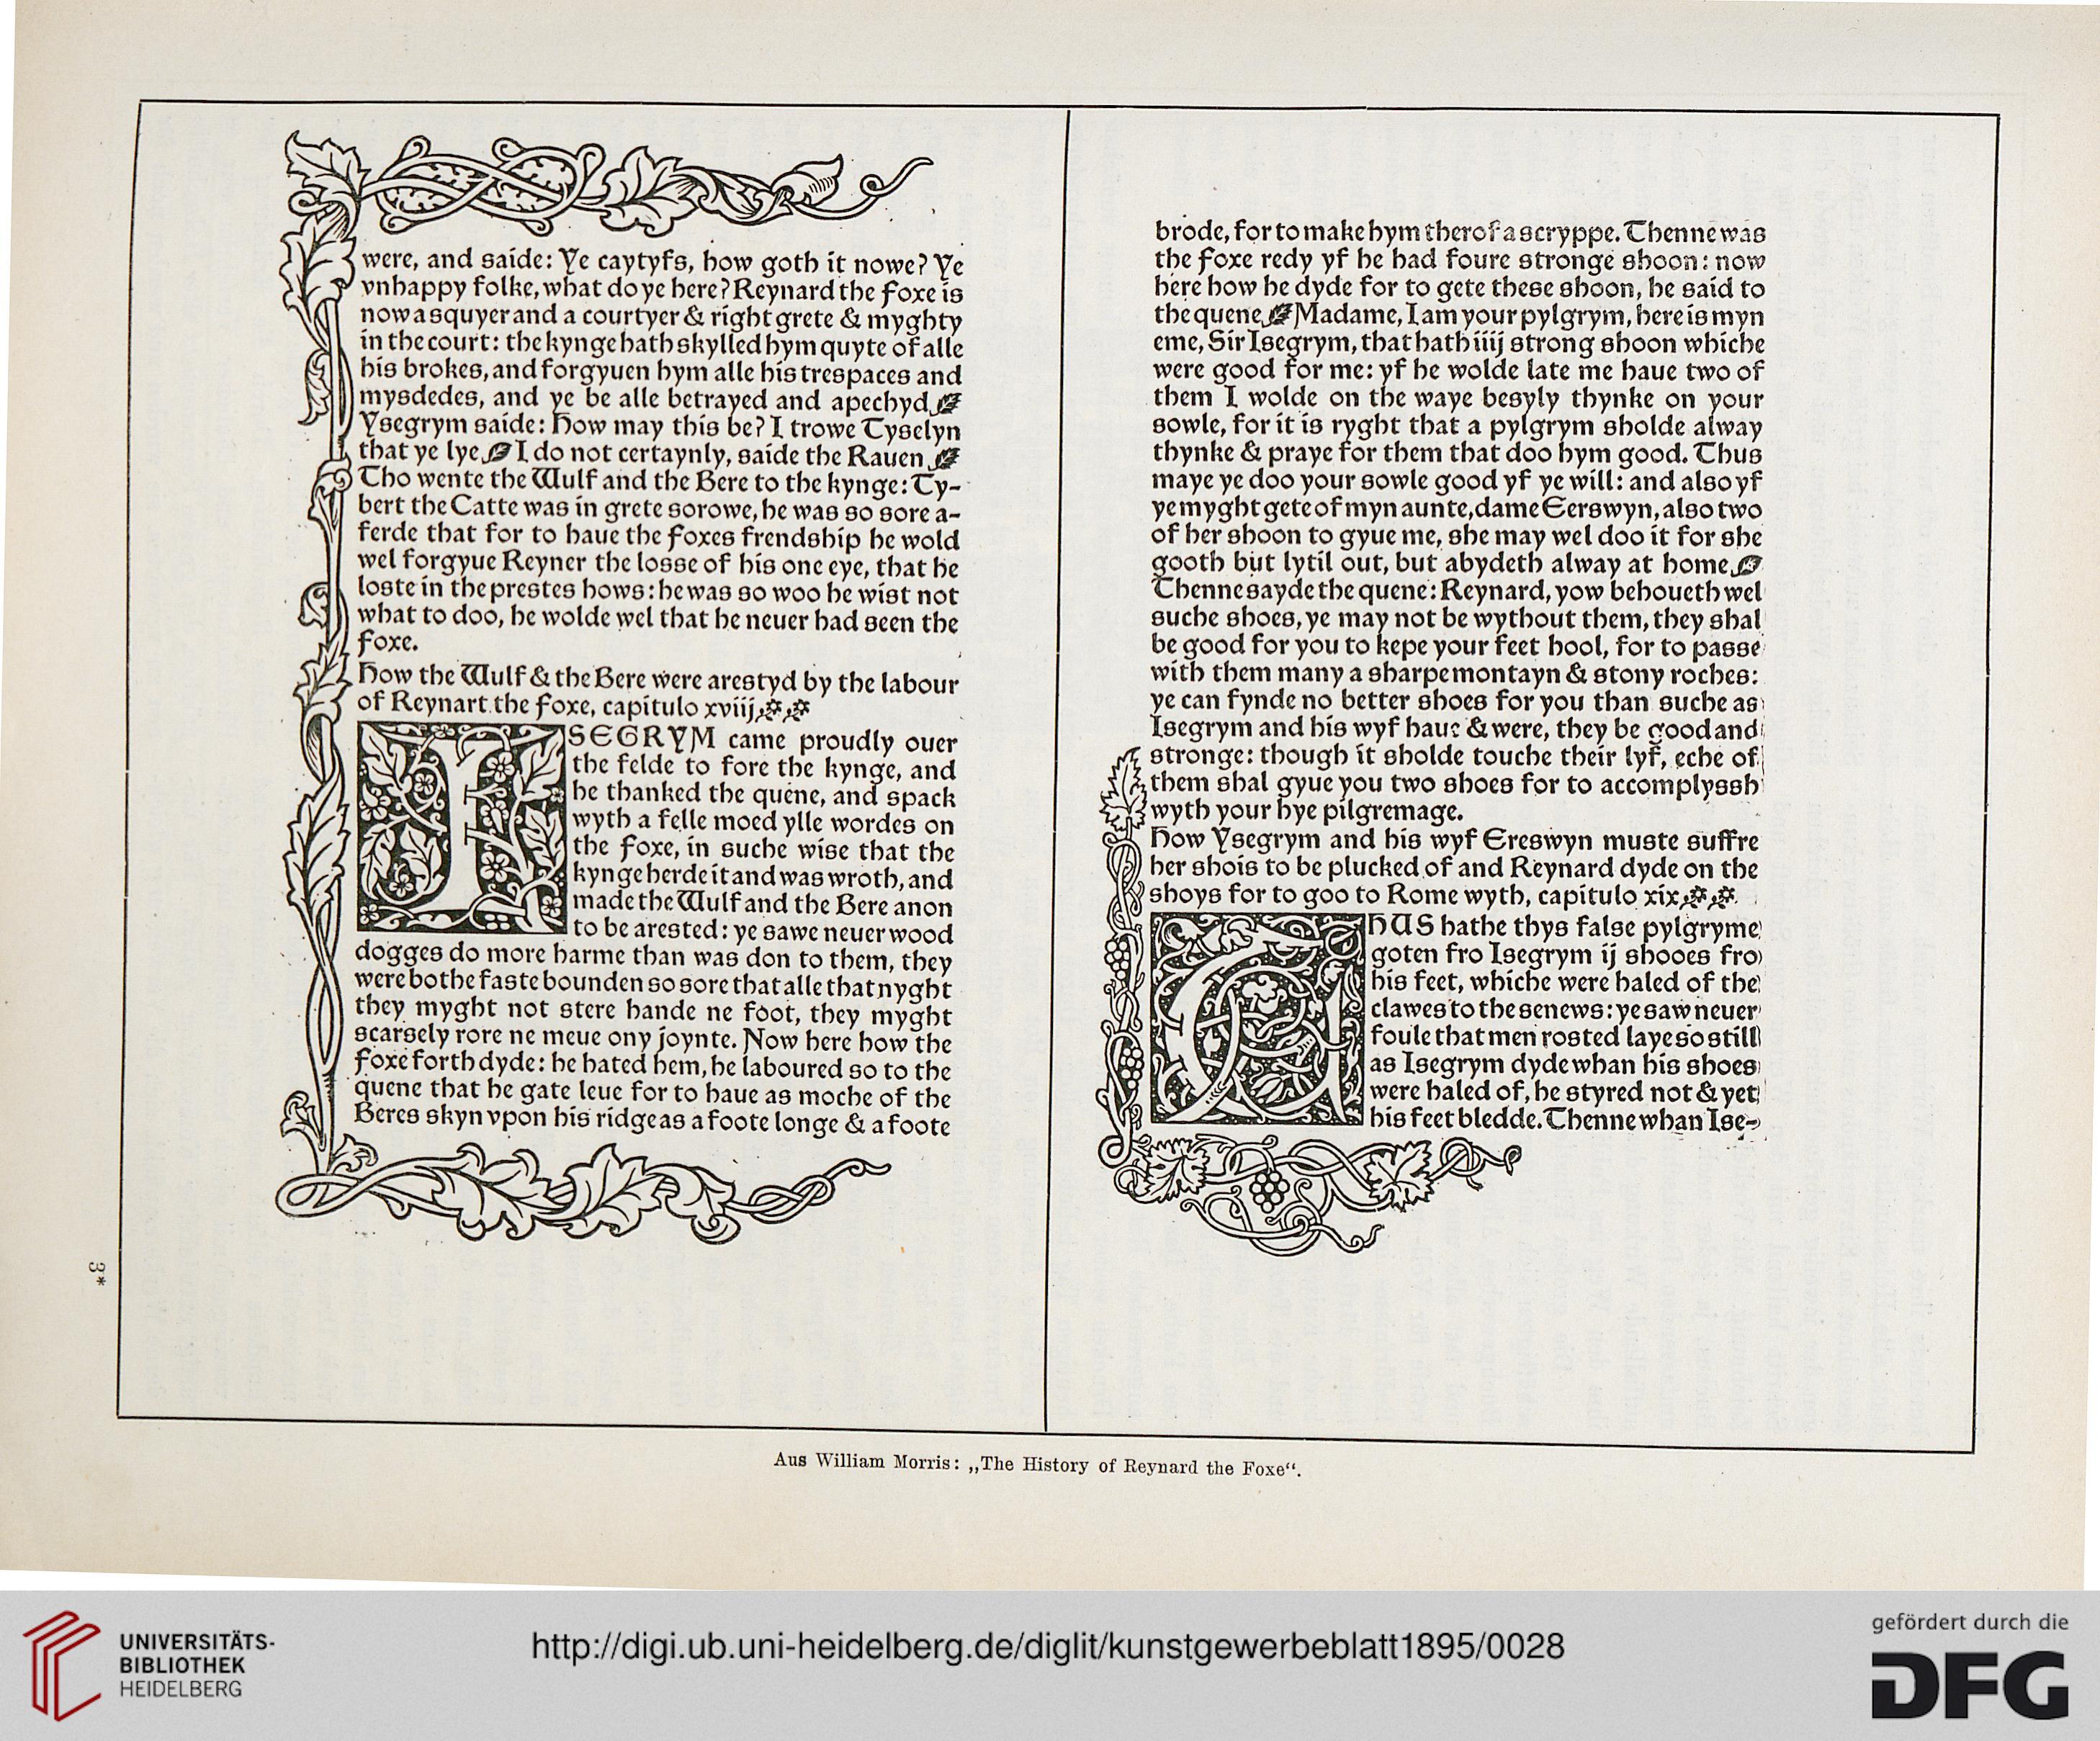 were, and saide: Ye caytyfs, how goth it nowe? Ye
vnhappy folke, what do ye here? Reynard the foxe is
now a squyer and a courtyer & right grete & myghty
in the court: the kynge hath skylled hym quyte of alle
his brokes, and forgyuen hym alle his trespaces and
mysdedes, and ye be alle betrayed and apechyd
Ysegrym saide: How may this be? I trowe Tyselyn
that ye lye I do not certaynly, saide the Rauen
Tho wente the Wulf and the Bere to the kynge: Ty-
bert the Catte was in grete sorowe, he was so sore a-
ferde that for to haue the foxes frendship he wold
wel forgyue Reyner the losse of his one eye, that he
loste in the prestes hows: he was so woo he wist not
what to doo, he wolde wel that he neuer had seen the
foxe.
How the Wulf & the Bere were arestyd by the labour
of Reynart the foxe, capitulo xviij
ISEGRYM came proudly ouer
the felde to fore the kynge, and
he thanked the quene, and spack
wyth a felle moed ylle wordes on
the foxe, in suche wise that the
kynge herde it and was wroth, and
made the Wulf and the Bere anon
to be arested: ye sawe neuer wood
dogges do more harme than was don to them, they
were bothe faste bounden so sore that alle that nyght
they myght not stere hande ne foot, they myght
scarsely rore ne meue ony joynte. Now here how the
foxe forth dyde: he hated hem, he laboured so to the
quene that he gate leue for to haue as moche of the
Beres skyn vpon his ridge as a foote longe & a foote
brode, for to make hym therof a scryppe. Thenne was
the foxe redy yf he had foure stronge shoon: now
here how he dyde for to gete these shoon, he said to
the quene Madame, I am your pylgrym, here is myn
eme, Sir Isegrym, that hath iiij strong shoon whiche
were good for me: yf he wolde late me haue two of
them I wolde on the waye besyly thynke on your
sowle, for it is ryght that a pylgrym sholde alway
thynke & praye for them that doo hym good. Thus
maye ye doo your sowle good yf ye will: and also yf
ye myght gete of myn aunte, dame Eerswyn, also two
of her shoon to gyue me, she may wel doo it for she
gooth but lytil out, but abydeth alway at home
Thenne sayde the quene: Reynard, yow behoueth wel
suche shoes, ye may not be wythout them, they shal
be good for you to kepe your feet hool, for to passe
with them many a sharpe montayn & stony roches:
ye can fynde no better shoes for you than suche as
Isegrym and his wyf haue & were, they be good and
stronge: though it sholde touche their lyf, eche of
them shal gyue you two shoes for to accomplyssh
wyth your hye pilgremage.
How Ysegrym and his wyf Ereswyn muste suffre
her shois to be plucked of and Reynard dyde on the
shoys for to goo to Rome wyth, capitulo xix
THUS hathe thys false pylgryme
goten fro Isegrym ij shooes fro
his feet, whiche were haled of the
clawes to the senews: ye saw neuer
foule that men rosted laye so still
as Isegrym dyde whan his shoes
were haled of, he styred not & yet
his feet bledde. Thenne whan Ise-
3*
Aus William Morris: „The History of Reynard the Foxe“.
UNIVERSITÄTS-
BIBLIOTHEK
HEIDELBERG
http://digi.ub.uni-heidelberg.de/diglit/kunstgewerbeblatt1895/0028
gefördert durch die
DFG